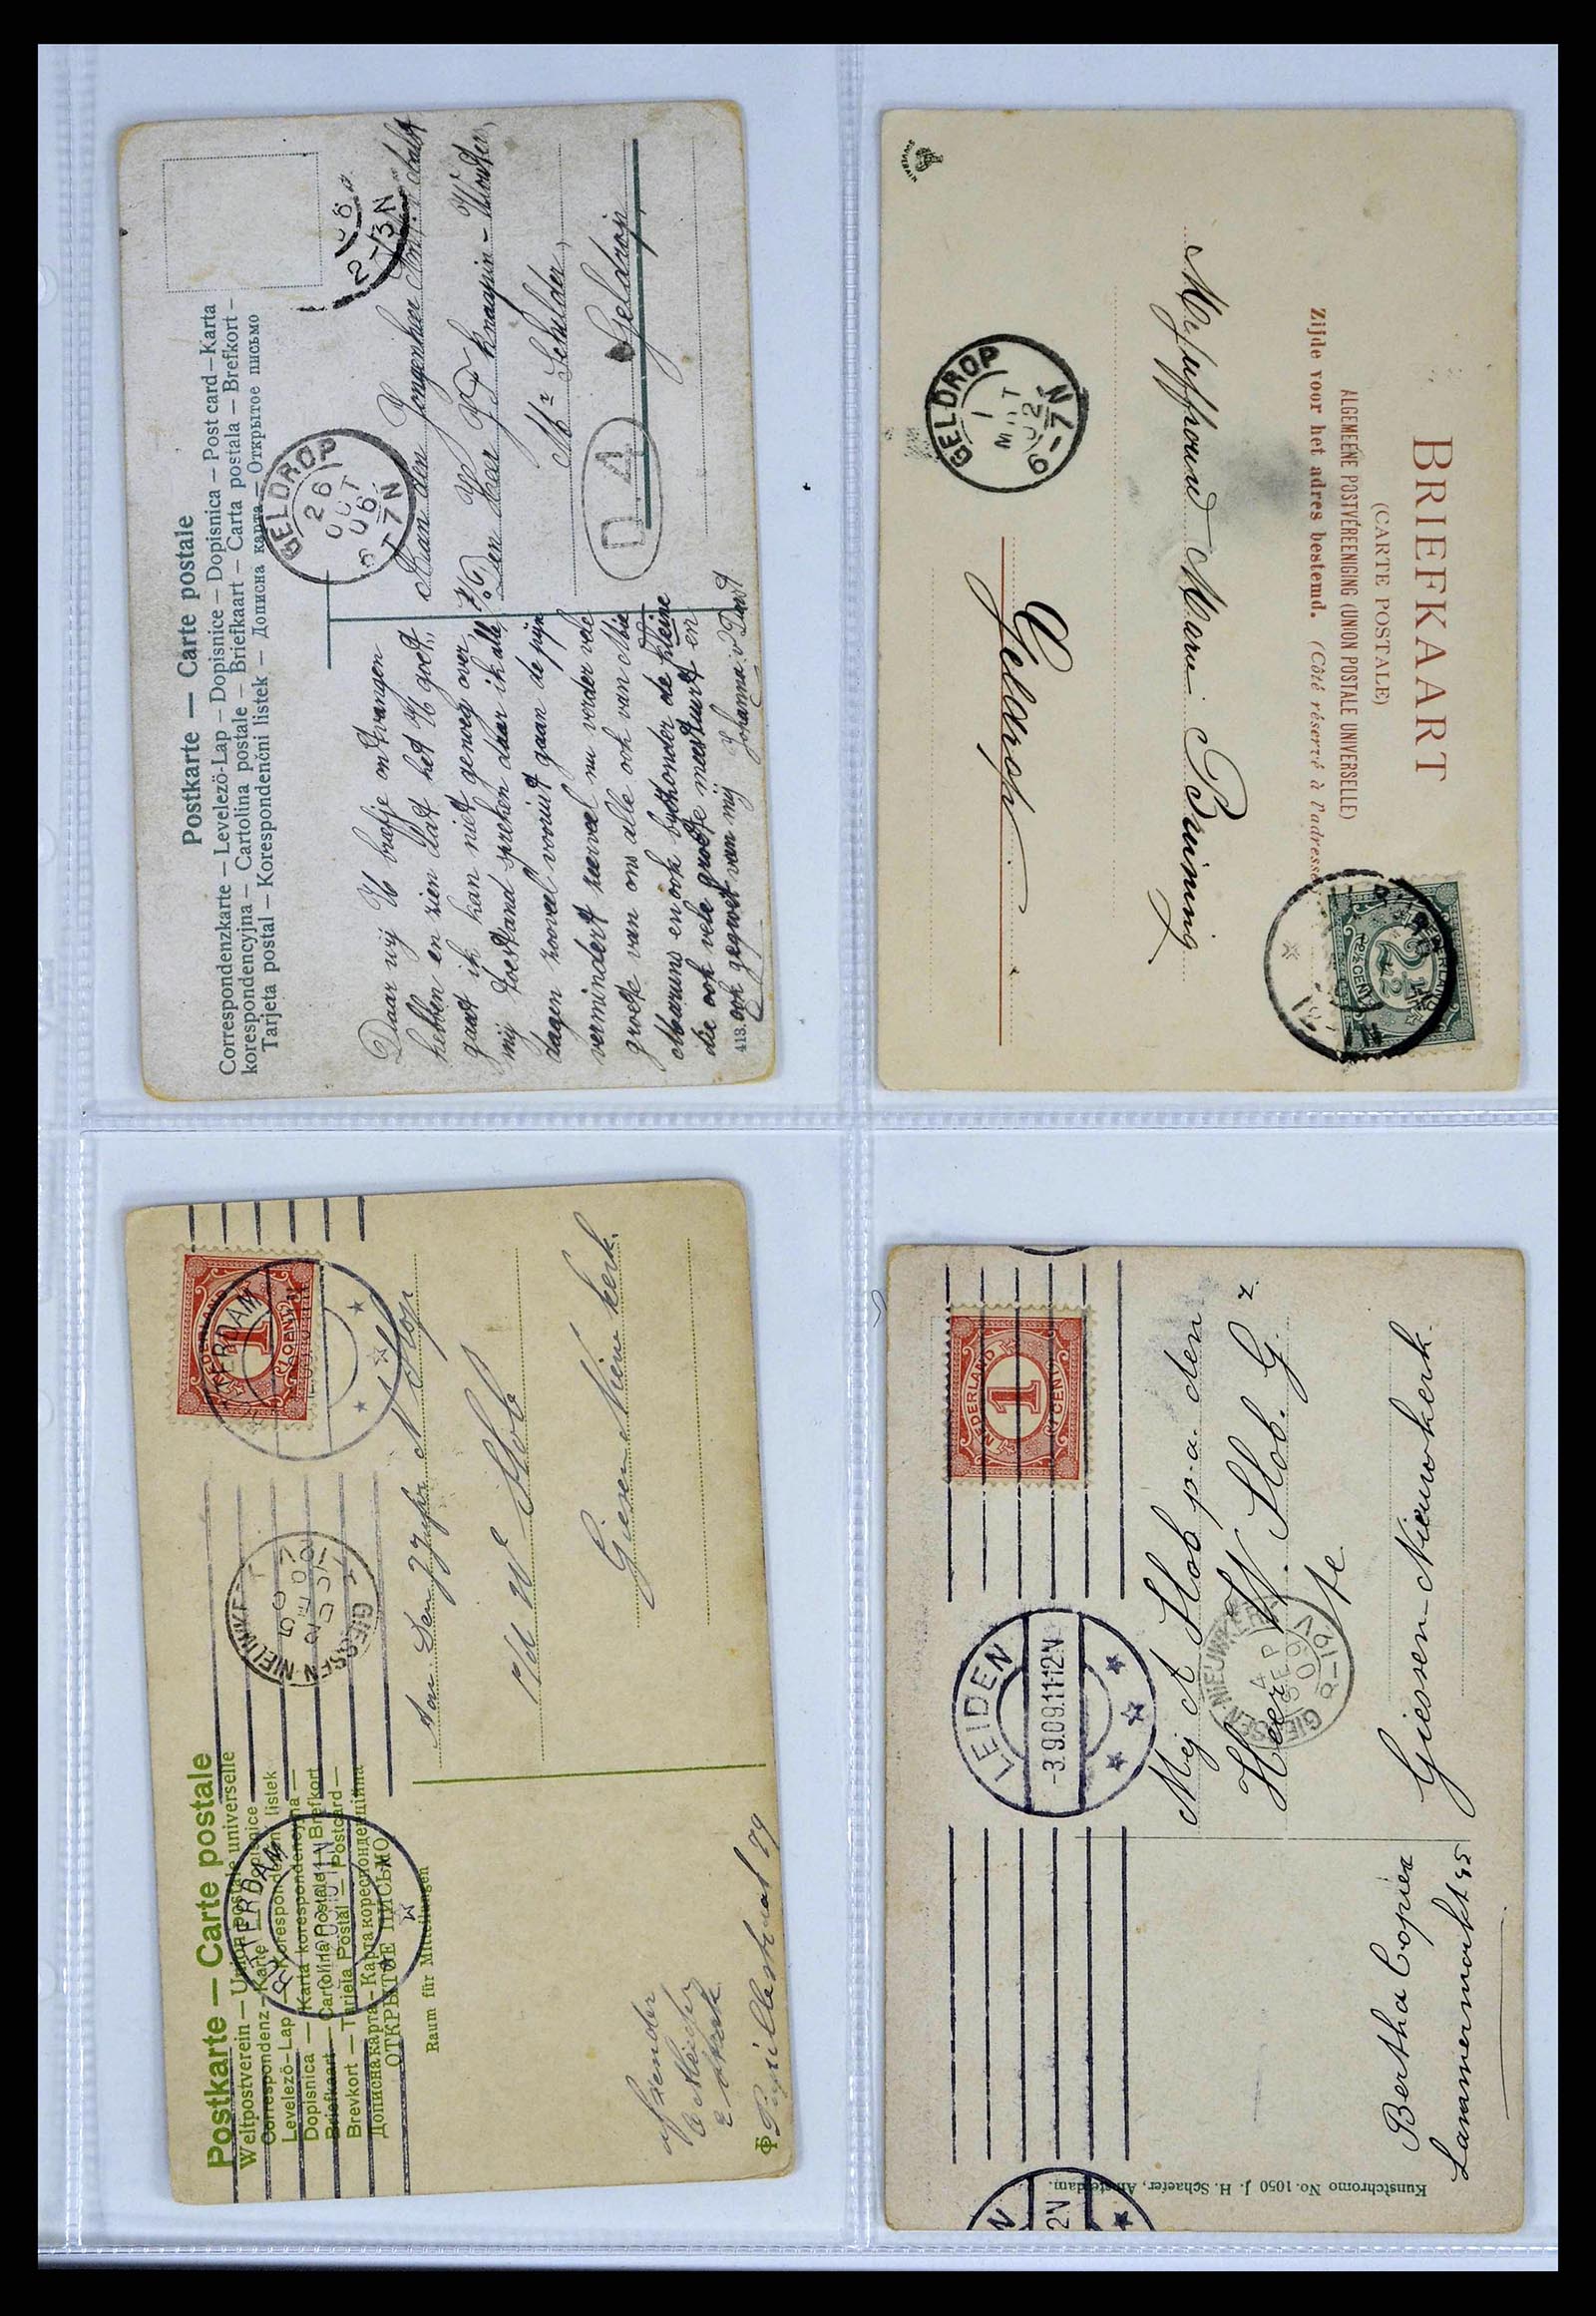 Postkarte — Carte postale
Correspondenzkarte — Levelezö-Lap — Dopisnice — Dopisnica — Post card — Karta
korespondencyjna — Cartolina postale — Briefkaart — Carta postala — Brefkort —
Tarjeta postal — Korespondenčni listek — Дописна карта — Открытое письмо
2-3N
GELDROP
26
OCT
06
Aan den Jongenheer
Den Heer
Knaapen - Wouters,
Mr Schilder,
Geldrop,
D A
Daar wij U briefje ontvangen
hebben en zien dat het U goed
gaat ik kan niet genoeg over
mij toestand spreken daar ik alle
dagen zooveel vooruit gaan de pijn
vermindert zeerveel nu verder vele
groete van ons alle ook van Mie
en ook byzonder de kleine
die ook vele groete meestuurt en
ook gegroet van mij Johanna v
413.
BRIEFKAART
(CARTE POSTALE)
ALGEMEENE POSTVEREENIGING (UNION POSTALE UNIVERSELLE)
Zijde voor het adres bestemd. (Côté réservé à l'adresse
NEDERLAND
2½
CENT
Mejuffrouw Marie Bruining
Geldrop
GELDROP
1
02
6-7N
Postkarte — Carte postale
Weltpostverein — Union postale universelle
Correspondenz-Karte — Dopisnice
Levelezö-Lap — Korespondenčni listek
Dopisnica — Karta korespondencyjna —
Briefkaart — Cartolina Postale — Brefkort
Brevkort — Tarjeta Postal — Postcard —
Дописна карта — Карта корреспонденційна
ОТКРЫТОЕ ПИСЬМО
Raum für Mitteilungen
NEDERLAND
1
CENT
ROTTERDAM
GIESSEN-NIEUWKERK
N Stop
W Slob
Giesen Nieuwkerk.
Afzender
79
NEDERLAND
1
CENT
LEIDEN
-3.9.09.11-12N
GIESSEN-NIEUWKERK
4
SEP
09
8-19V
Mej A Slob p.a. den
Heer W. Slob. G. z.
te
Giessen-Nieuwkerk.
Bertha Copier
Lammermarkt 95
Kunstchromo No. 1050 J. H. Schaefer, Amsterdam.
N
2N